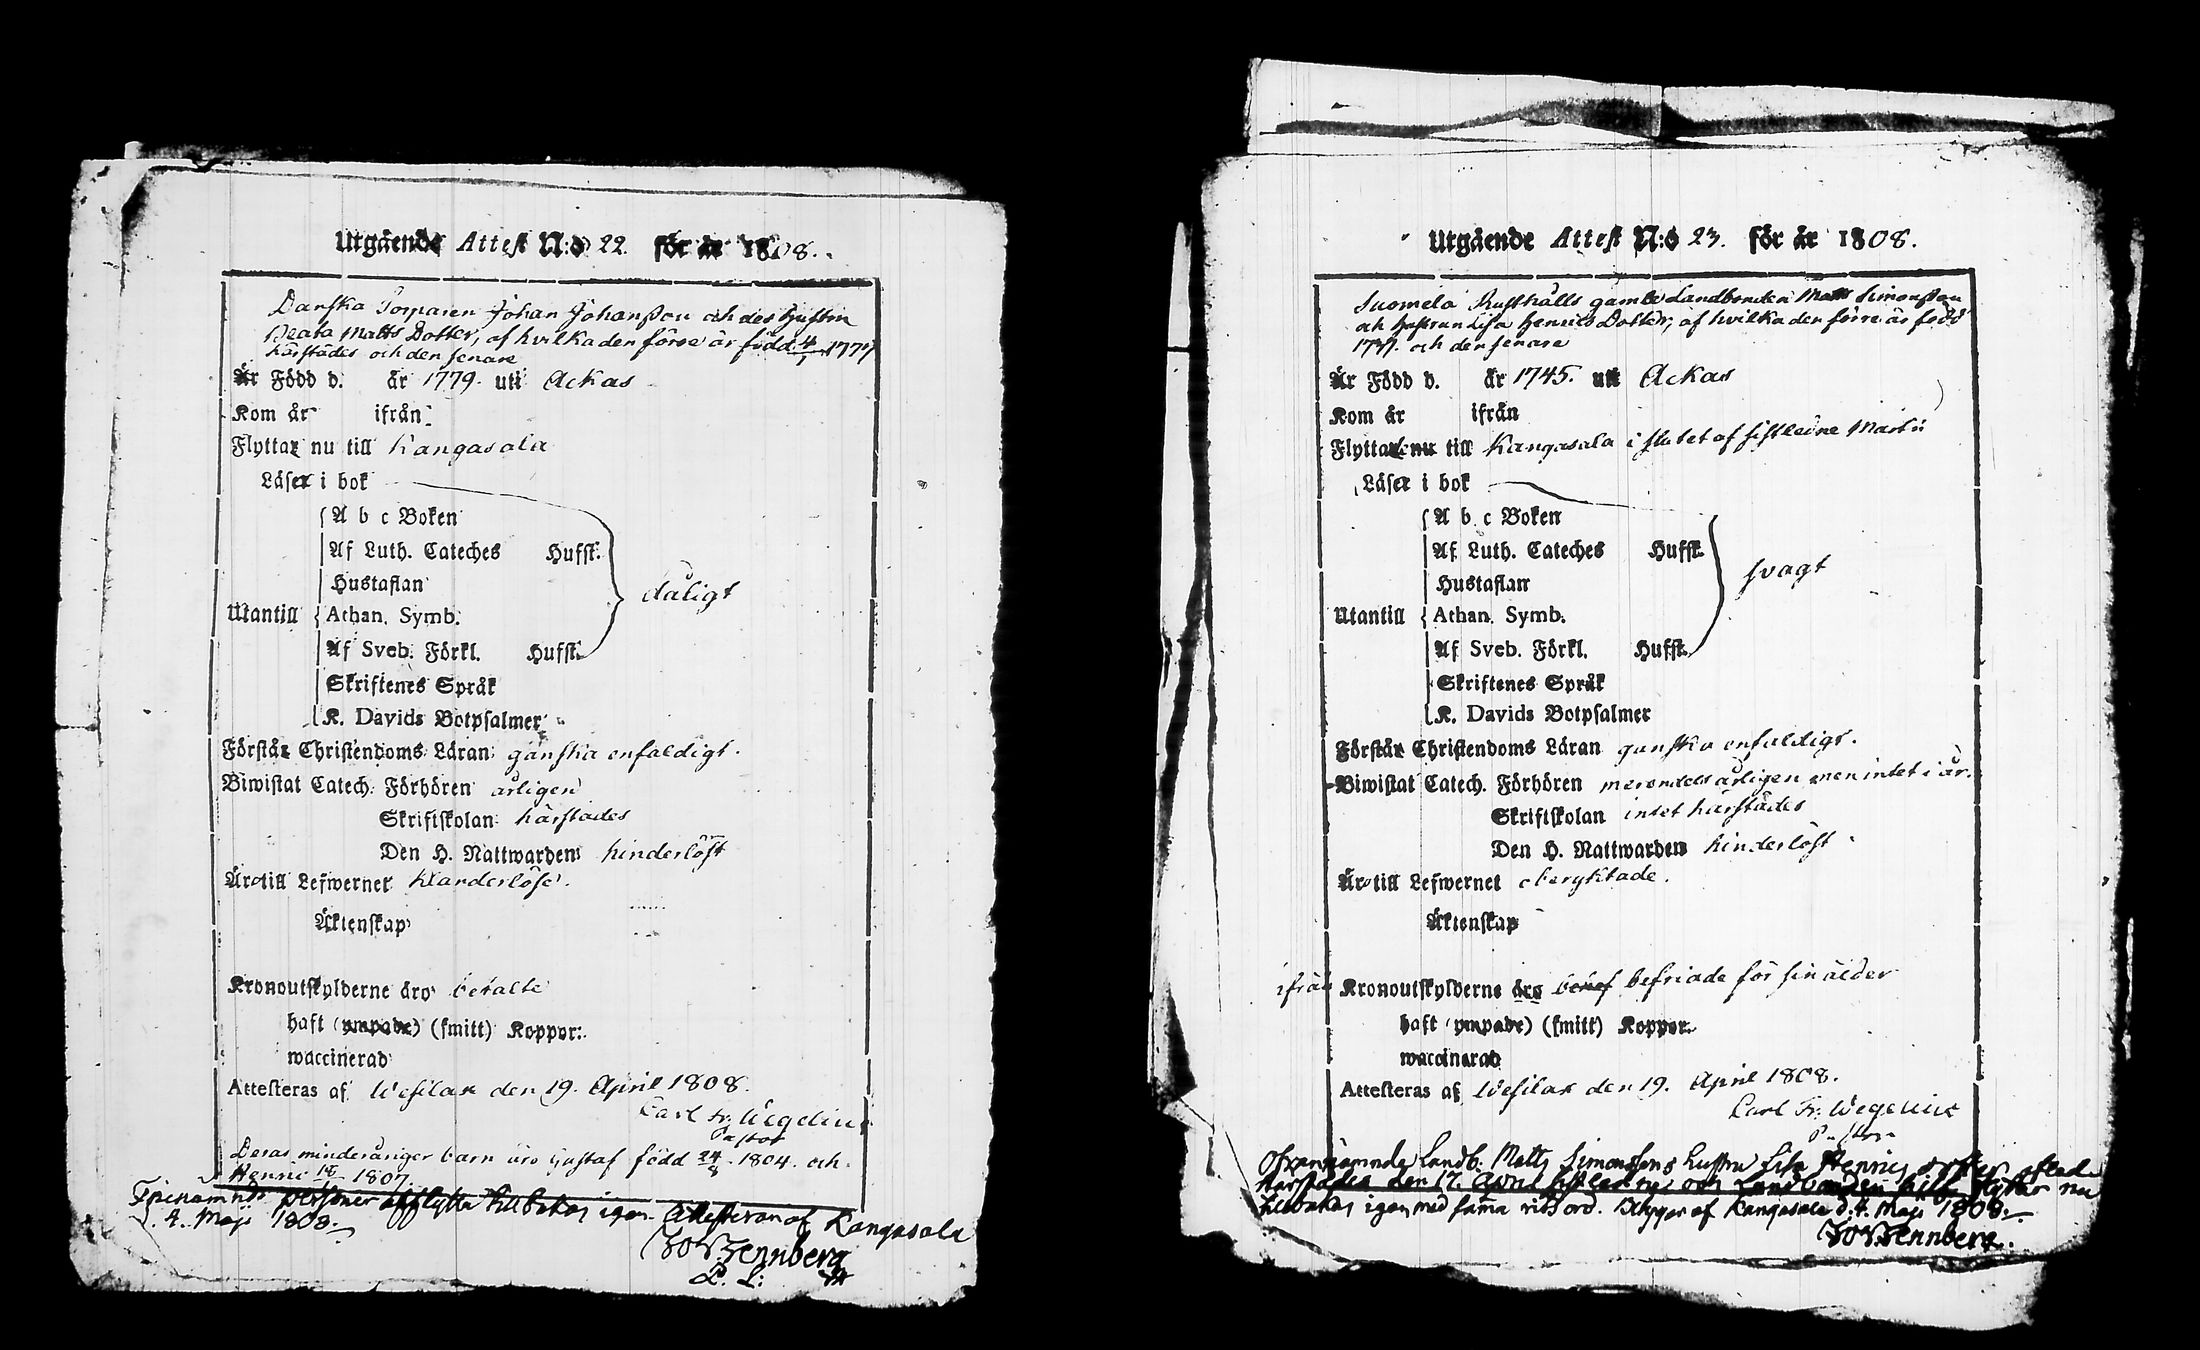 Utgående Attest N:o 22. för år 1808.
Danska Torparen Johan Johansson och des hustru
Beata Matts Dotter, af hvilka den förre är född 4/1 1777
härstädes och den senare
Är Född d. år 1779. uti Ackas
Kom år ifrån
Flyttar nu till Kangasala
Läser i bok
A b c Boken
Af Luth. Cateches Hufst.
Hustaflan
Utantill Athan. Symb.
Af Sveb. Förkl. Hufst.
Skriftenes Språk
K. Davids Botpsalmer
dåligt
Förstår Christendoms Läran ganska enfaldigt.
Biwistat Catech. Förhören årligen
Skriftskolan härstädes
Den H. Nattwarden hinderlöst
Äro till Lefwernet klanderlöse.
Äktenskap
Kronoutskylderne äro betalte
haft (ympade) (smitt) Koppor.
waccinerad
Attesteras af Wesilax den 19. April 1808.
Carl Fr. Wegelius
Pastor
Deras minderåriger barn äro Gustaf född 24/8 1804. och
Henric 1807.
Förenämnde personer afflytta tillbakas igen. Attesteras af Kangasala
d. 4. Maji 1808.
Zennberg
P. L:
Utgående Attest N:o 23. för år 1808.
Suomela Rusthålls gamle Landbonden Matts Simonsson
och hustrun Lisa Henrics Dotter, af hvilka den förre är född
1737. och den senare
Är Född d. år 1745. uti Ackas
Kom år ifrån
Flyttade nu till Kangasala i slutet af sistledne Martii
Läser i bok
A b c Boken
Af Luth. Cateches Hufst.
Hustaflan
Utantill Athan. Symb.
Af Sveb. Förkl. Hufst.
Skriftenes Språk
K. Davids Botpsalmer
svagt
Förstår Christendoms Läran ganska enfaldigt.
Biwistat Catech. Förhören merendels årligen men intet i år.
Skriftskolan intet härstädes
Den H. Nattwarden hinderlöst
Äro till Lefwernet oberyktade.
Äktenskap
ifrån Kronoutskylderne äro befriade för sin ålder
haft (ympade) (smitt) Koppor.
waccinerad
Attesteras af Wesilax den 19. April 1808.
Carl Fr. Wegelius
Pastor
Ofvannämnde Landb. Matts Simonssons hustru Lisa Henrics dotter afled
härstädes den 17. April sistledne och Landbonden sielf flyttar nu
tillbakas igen med samma vitsord. af Kangasala d. 4. Maji 1808.
Zennberg.